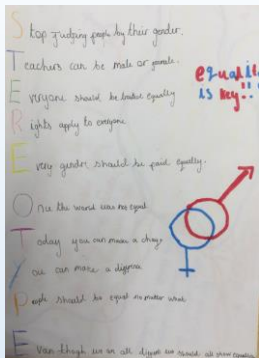 Stop judging people by their gender.
Teachers can be male or female.
equali
is key!!
Everyone should be treated equally
Rights apply to everyone
Every gender should be paid equally.
Once the world was not equal
Today you can make a change
You can make a
People should be equal no matter what
Even though we are all we should all